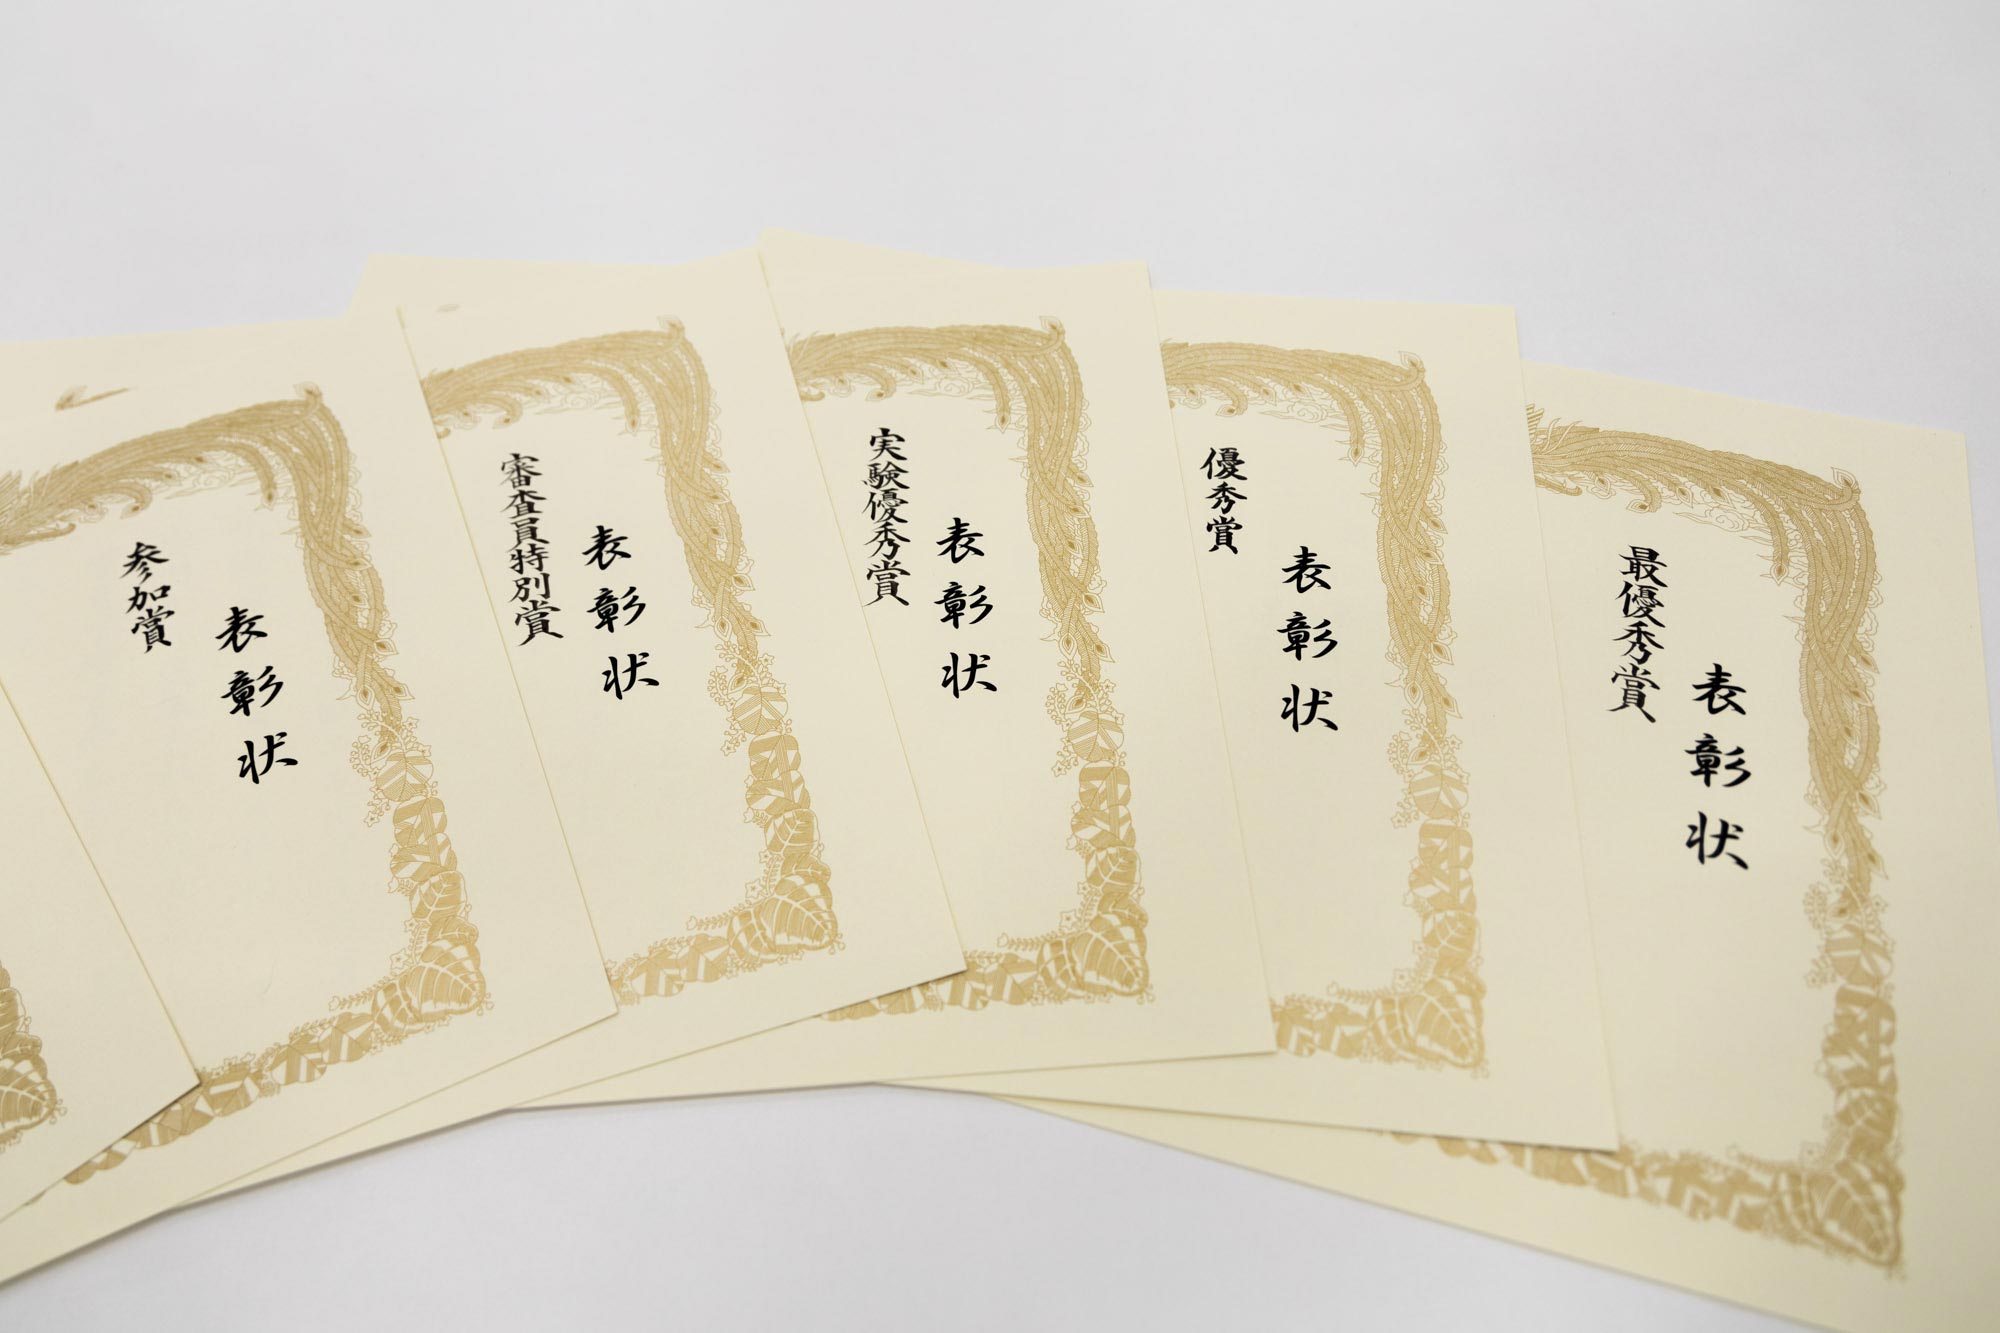 表彰状
最優秀賞
表彰状
優秀賞
表彰状
実験優秀賞
表彰状
審査員特別賞
表彰状
参加賞